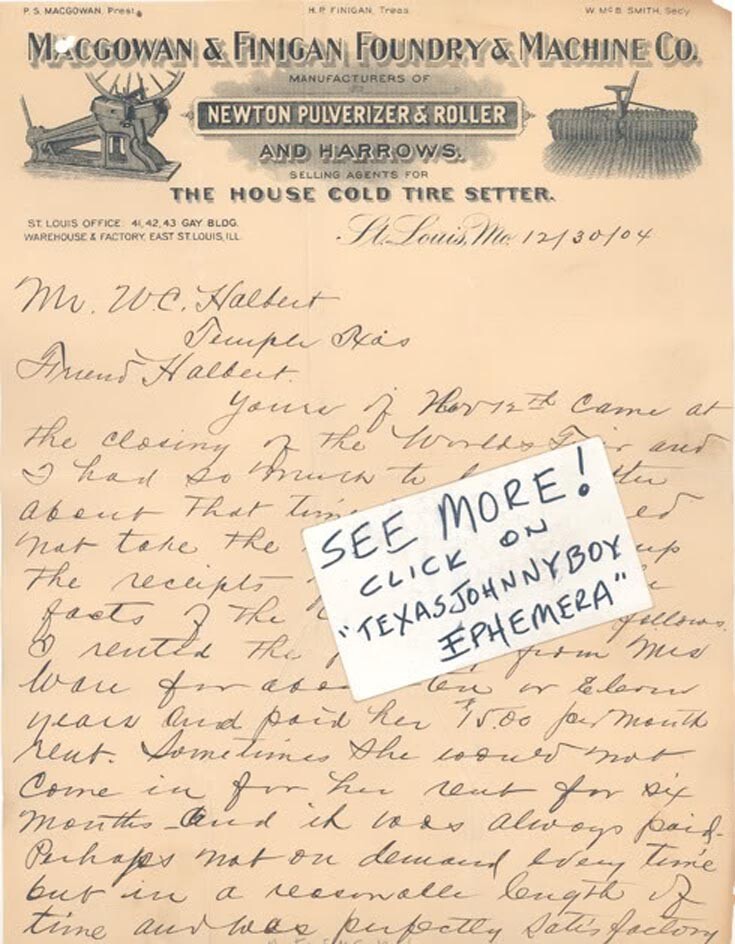 P. S. MACGOWAN, Prest.
H. P. FINIGAN, Treas.
W. McB. SMITH, Secy.
MACGOWAN & FINIGAN FOUNDRY & MACHINE CO.
MANUFACTURERS OF
NEWTON PULVERIZER & ROLLER
AND HARROWS.
SELLING AGENTS FOR
THE HOUSE COLD TIRE SETTER.
ST. LOUIS OFFICE: 41, 42, 43 GAY BLDG.
WAREHOUSE & FACTORY, EAST ST. LOUIS, ILL.
St. Louis, Mo. 12/30/04
Mr. W.C. Halbert
Temple Txas
Friend Halbert.
Yours of Nov 12th came at
the closing of the Worlds Fair and
I had so much to
about that time ed
not take the up
the receipts
facts of the follows.
I rented the from Mrs
Ware for about ten or Eleven
years and paid her $15.00 per month
rent. Sometimes she would not
come in for her rent for six
months and it was always paid.
Perhaps not on demand every time
but in a reasonable length of
time and was perfectly satisfactory
SEE MORE!
CLICK ON
"TEXASJOHNNYBOY
EPHEMERA"